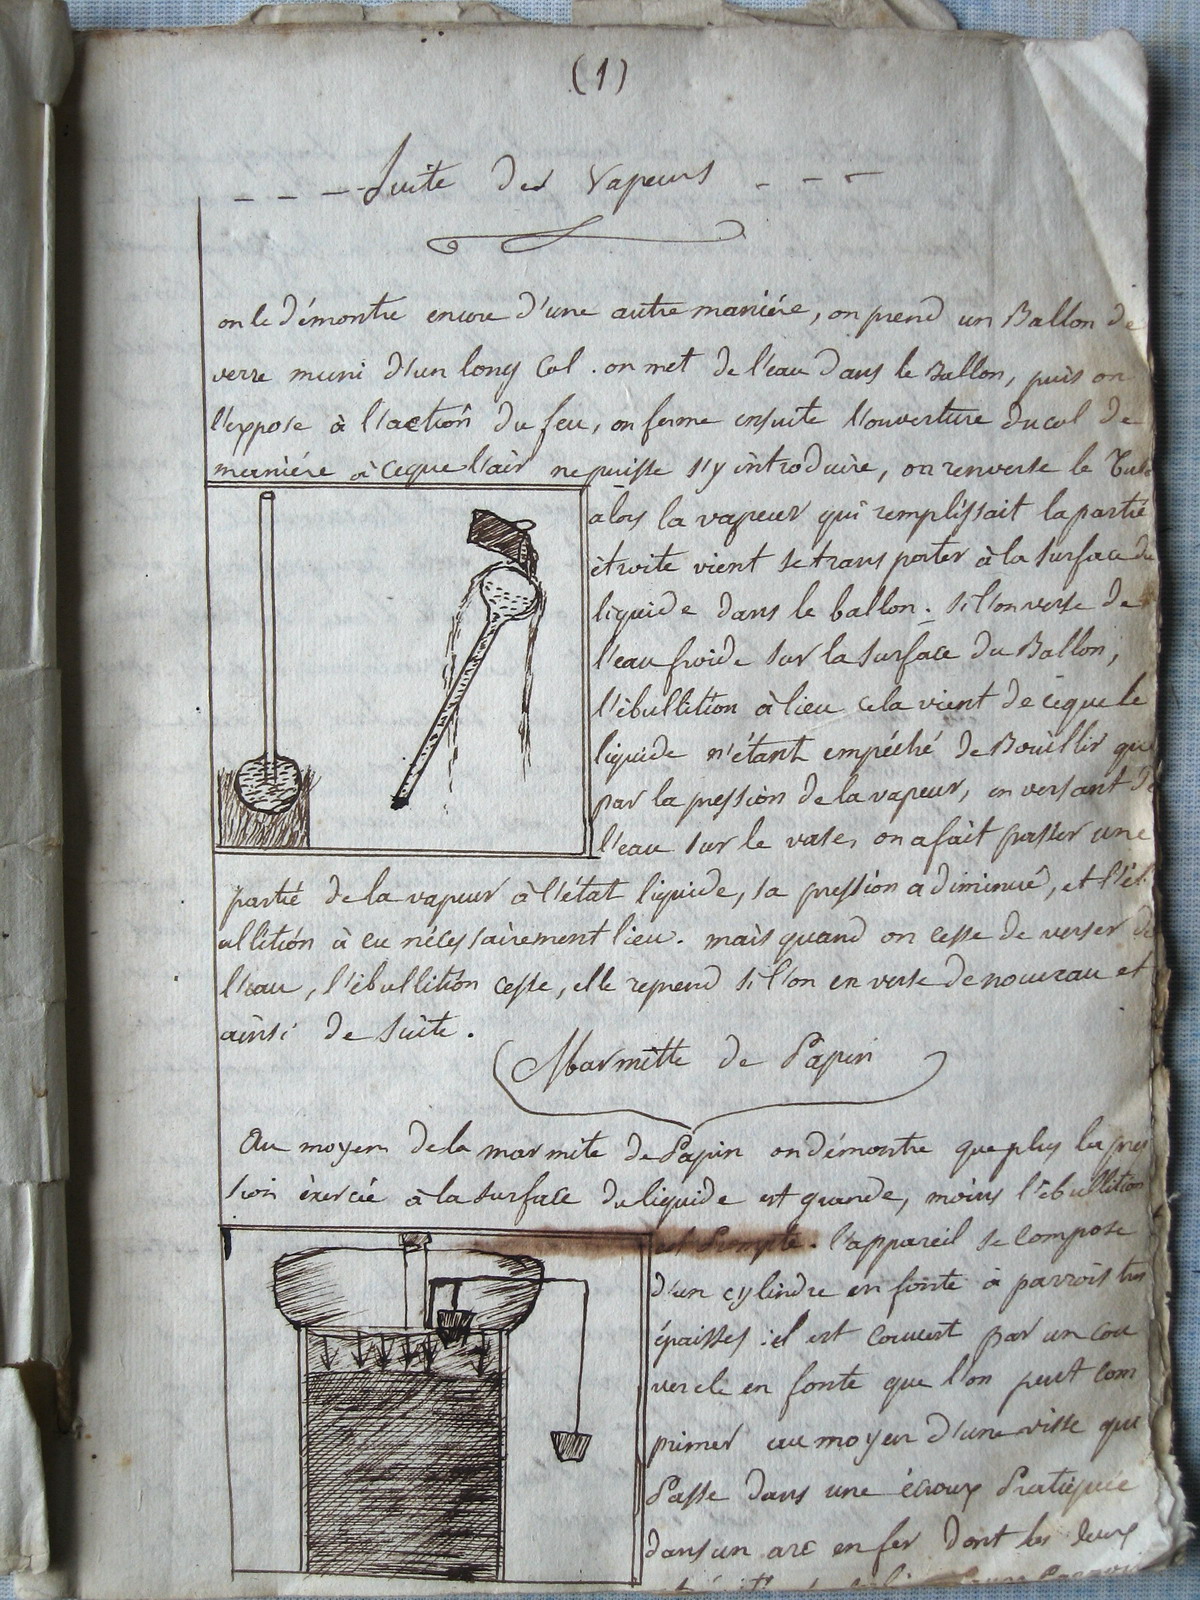 (1)
Suite des Vapeurs
on le démontre encore d'une autre maniére, on prend un Ballon de
verre muni d'un long Col. on met de l'eau dans le Ballon, puis on
l'expose à l'action du feu, on ferme ensuite l'ouverture du col de
maniére à ceque l'air ne puisse s'y introduire, on renverse le Tube
alors la vapeur qui remplissait la partie
étroite vient se transporter à la surface du
liquide dans le ballon. si l'on verse de
l'eau froide sur la surface du Ballon,
l'ébullition à lieu cela vient de ceque le
liquide n'étant empéché de Bouillir que
par la pression de la vapeur, en versant de
l'eau sur le vase, on a fait passer une
partie de la vapeur à l'état liquide, sa pression a diminué, et l'éb
ullition à eu nécessairement lieu. mais quand on cesse de verser de
l'eau, l'ébullition cesse, elle reprend si l'on en verse de nouveau et
ainsi de suite.
Marmitte de Papin
Au moyen de la marmite de Papin on démontre que plus la pres
sion exercée à la surface du liquide est grande, moins l'ébullition
est prompte. l'appareil se compose
d'un cylindre en fonte à parrois très
épaisses il est couvert par un cou
vercle en fonte que l'on peut com
primer au moyen d'une visse qui
Passe dans une écroux Pratiquée
dans un arc en fer dont les deux